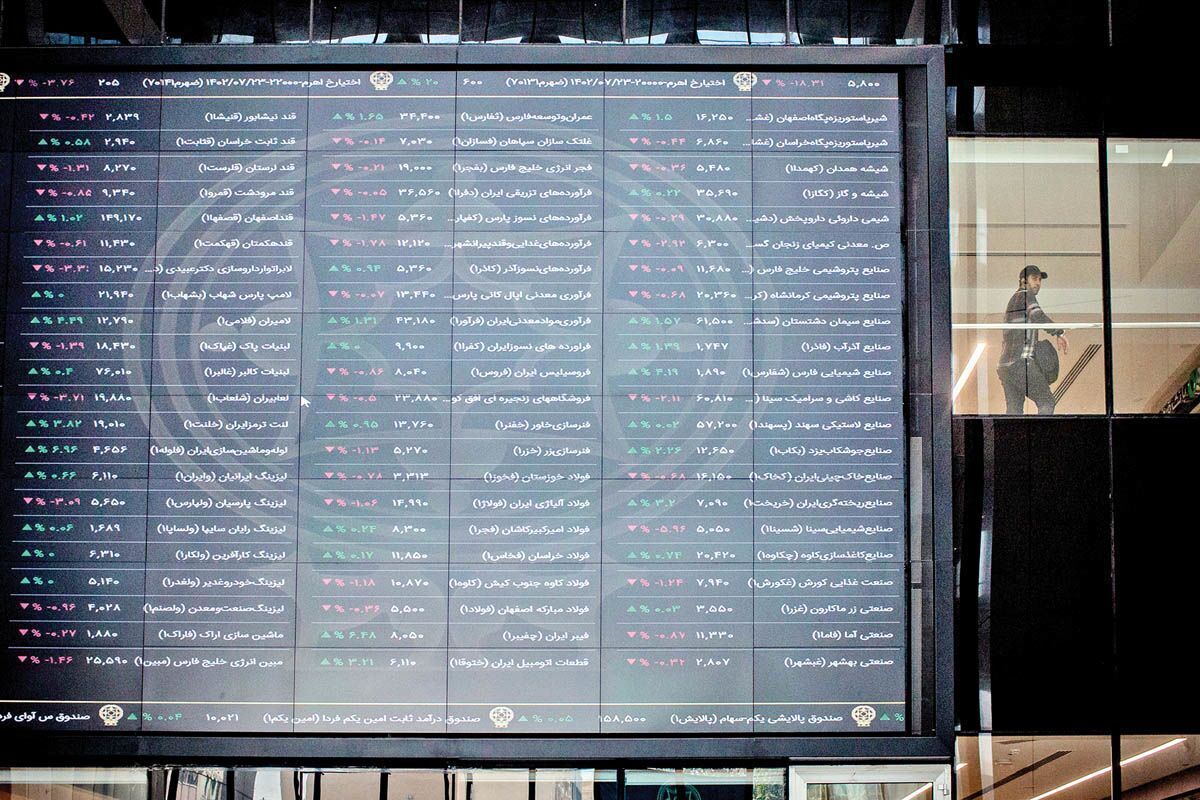 ۵,۸۰۰ ▼ % -۱۸.۳۱ اختیارخ اهرم-۲۰۰۰۰-۱۴۰۲/۰۷/۲۳ (ضهرم۷۰۱۳۱) ۶۰۰ ▲ % ۲۰ اختیارخ اهرم-۲۲۰۰۰-۱۴۰۲/۰۷/۲۳ (ضهرم۷۰۱۴۱) ۲۰۵ ▼ % -۳.۷۶
شیرپاستوریزه‌پگاه‌اصفهان (غش... ۱۶,۲۵۰ ▲ % ۱.۵ عمران‌وتوسعه‌فارس (ثفارس۱) ۳۴,۴۰۰ ▲ % ۱.۶۵ قند نیشابور (قنیشا۱) ۲,۸۳۹ ▼ % -۰.۴۲
شیرپاستوریزه‌پگاه‌خراسان (غشا... ۶,۸۶۰ ▼ % -۰.۴۴ غلتک سازان سپاهان (فسازان۱) ۷,۰۳۰ ▼ % -۰.۱۴ قند ثابت خراسان (قثابت۱) ۲,۹۴۰ ▲ % ۰.۵۸
شیشه همدان (کهمدا۱) ۵,۴۸۰ ▼ % -۰.۳۶ فجر انرژی خلیج فارس (بفجر۱) ۱۹,۰۰۰ ▼ % -۰.۲۱ قند لرستان (قلرست۱) ۸,۲۷۰ ▼ % -۱.۳۱
شیشه و گاز (کگاز۱) ۳۵,۶۹۰ ▲ % ۰.۲۲ فرآورده‌های تزریقی ایران (دفرا۱) ۳۶,۵۶۰ ▼ % -۰.۰۵ قند مرودشت (قمرو۱) ۹,۳۴۰ ▼ % -۰.۸۵
شیمی داروئی داروپخش (دشی... ۳۰,۸۸۰ ▼ % -۰.۲۹ فرآورده‌های نسوز پارس (کفپار... ۵,۳۶۰ ▼ % -۱.۴۷ قنداصفهان (قصفها۱) ۱۴۹,۱۷۰ ▲ % ۱.۰۲
ص. معدنی کیمیای زنجان گس... ۶,۳۰۰ ▼ % -۲.۹۲ فرآورده‌های‌غذایی‌وقندپیرانشهر... ۱۲,۱۲۰ ▼ % -۱.۷۸ قندهکمتان (قهکمت۱) ۱۱,۴۳۰ ▼ % -۰.۶۱
صنایع پتروشیمی خلیج فارس (... ۱۱,۶۸۰ ▼ % -۰.۰۹ فرآورده‌های‌نسوزآذر (کاذر۱) ۵,۳۶۰ ▲ % ۰.۹۴ لابراتوارداروسازی دکترعبیدی (د... ۱۵,۲۳۰
صنایع پتروشیمی کرمانشاه (کر... ۲۰,۳۶۰ ▼ % -۰.۶۸ فرآوری معدنی اپال کانی پارس... ۱۳,۴۴۰ ▼ % -۰.۰۷ لامپ پارس شهاب (بشهاب۱) ۲۱,۹۴۰ ▲ % ۰
صنایع سیمان دشتستان (سدش... ۶۱,۵۰۰ ▲ % ۱.۵۷ فرآوری‌موادمعدنی‌ایران (فرآور۱) ۴۳,۱۸۰ ▲ % ۱.۳۱ لامیران (فلامی۱) ۱۲,۷۹۰ ▲ % ۴.۴۹
صنایع آذرآب (فاذر۱) ۱,۷۴۷ ▲ % ۱.۳۹ فراورده های نسوزایران (کفرا۱) ۹,۹۰۰ ▲ % ۰ لبنیات پاک (غپاک۱) ۱۸,۴۳۰ ▼ % -۱.۳۹
صنایع شیمیایی فارس (شفارس۱) ۱,۸۹۰ ▲ % ۴.۱۹ فروسیلیس ایران (فروس۱) ۸,۰۴۰ ▼ % -۰.۸۶ لبنیات کالبر (غالبر۱) ۷۶,۰۱۰ ▲ % ۰.۴
صنایع کاشی و سرامیک سینا (... ۶۰,۸۱۰ ▼ % -۲.۱۱ فروشگاههای زنجیره ای افق کو... ۲۳,۸۸۰ ▼ % -۰.۵ لعابیران (شلعاب۱) ۱۹,۸۸۰ ▼ % -۳.۷۱
صنایع لاستیکی سهند (پسهند۱) ۵۷,۲۰۰ ▲ % ۰.۰۲ فنرسازی‌خاور (خفنر۱) ۱۳,۷۶۰ ▲ % ۰.۹۵ لنت ترمزایران (خلنت۱) ۱۹,۰۱۰ ▲ % ۳.۸۲
صنایع‌جوشکاب‌یزد (بکاب۱) ۱۲,۶۵۰ ▲ % ۲.۲۶ فنرسازی‌زر (خزر۱) ۵,۲۷۰ ▼ % -۱.۱۳ لوله‌وماشین‌سازی‌ایران (فلوله۱) ۴,۶۵۶ ▲ % ۶.۹۶
صنایع‌خاک‌چینی‌ایران (کخاک۱) ۱۶,۱۵۰ ▼ % -۰.۶۸ فولاد خوزستان (فخوز۱) ۳,۳۱۳ ▼ % -۰.۷۸ لیزینگ ایرانیان (وایران۱) ۶,۱۱۰ ▲ % ۰.۶۶
صنایع‌ریخته‌گری‌ایران (خریخت۱) ۷,۰۹۰ ▲ % ۳.۲ فولاد آلیاژی ایران (فولاژ۱) ۱۴,۹۹۰ ▼ % -۱.۰۶ لیزینگ پارسیان (ولپارس۱) ۵,۶۵۰ ▼ % -۳.۰۹
صنایع‌شیمیایی‌سینا (شسینا۱) ۵,۰۵۰ ▼ % -۵.۹۶ فولاد امیرکبیرکاشان (فجر۱) ۸,۳۰۰ ▲ % ۰.۲۴ لیزینگ رایان‌ سایپا (ولساپا۱) ۱,۶۸۹ ▲ % ۰.۰۶
صنایع‌کاغذسازی‌کاوه (چکاوه۱) ۲۰,۴۲۰ ▲ % ۰.۷۴ فولاد خراسان (فخاس۱) ۱۱,۸۵۰ ▲ % ۰.۱۷ لیزینگ کارآفرین (ولکار۱) ۶,۳۱۰ ▲ % ۰
صنعت غذایی کورش (غکورش۱) ۷,۹۴۰ ▼ % -۱.۲۴ فولاد کاوه جنوب کیش (کاوه۱) ۱۰,۸۷۰ ▼ % -۱.۱۸ لیزینگ‌خودروغدیر (ولغدر۱) ۵,۱۴۰ ▲ % ۰
صنعتی زر ماکارون (غزر۱) ۳,۵۵۰ ▲ % ۰.۰۳ فولاد مبارکه اصفهان (فولاد۱) ۵,۵۰۰ ▼ % -۰.۳۶ لیزینگ‌صنعت‌ومعدن (ولصنم۱) ۴,۰۲۸ ▼ % -۰.۹۶
صنعتی آما (فاما۱) ۱۱,۳۳۰ ▼ % -۰.۸۷ فیبر ایران (چفیبر۱) ۸,۰۵۰ ▲ % ۶.۴۸ ماشین سازی اراک (فاراک۱) ۱,۸۸۰ ▼ % -۰.۲۷
صنعتی بهشهر (غبشهر۱) ۲,۸۰۷ ▼ % -۰.۳۲ قطعات اتومبیل ایران (ختوقا۱) ۶,۱۱۰ ▲ % ۳.۲۱ مبین انرژی خلیج فارس (مبین۱) ۲۵,۵۹۰ ▼ % -۱.۴۶
▲ % صندوق پالایشی یکم-سهام (پالایش۱) ۱۵۸,۵۰۰ ▲ % ۰.۰۵ صندوق درآمد ثابت امین یکم فردا (امین یکم۱) ۱۰,۰۲۱ ▲ % ۰.۰۴ صندوق س آوای فرد